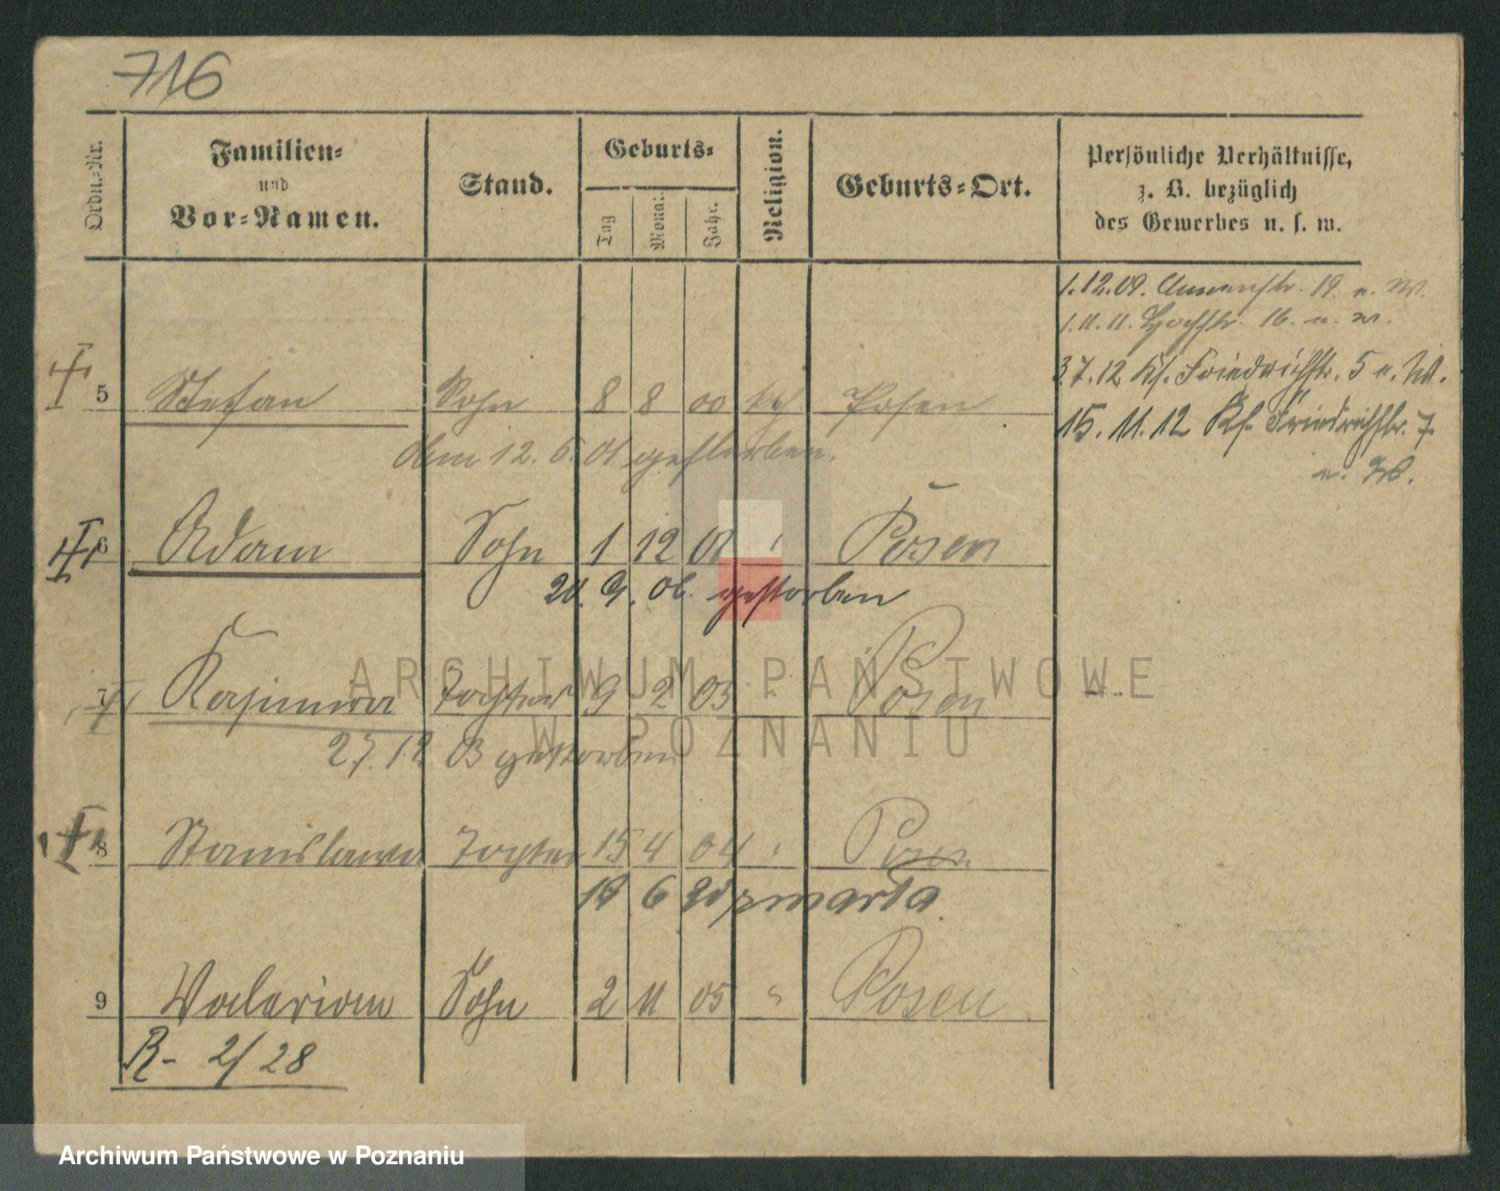 716
Ordn.-Nr.
Familien-
und
Vor-Namen.
Stand.
Geburts-
Tag
Monat
Jahr.
Religion.
Geburts-Ort.
Persönliche Verhältnisse,
z. B. bezüglich
des Gewerbes u. s. w.
1.12.09. 19 n. W.
1.11.11. Hochstr. 16. n. W.
3.7.12 Kf. Friedrichstr. 5 n. W.
5 Stefan Sohn 8 8 00 kth Posen
15.11.12 Kf. Friedrichstr. 7
n. W.
Am 12. 6. 01 gestorben.
6 Adam Sohn 1 12 01 " Posen
20. 9. 06. gestorben
7 Kasimira Tochter 9 2 03 " Posen
27.12. 03 gestorben
8 Stanislawa Tochter 15 4 04 " Posen
19 6 zmarła
9 Valerian Sohn 2 11 05 " Posen
R- 2/28
ARCHIWUM PAŃSTWOWE
W POZNANIU
Archiwum Państwowe w Poznaniu